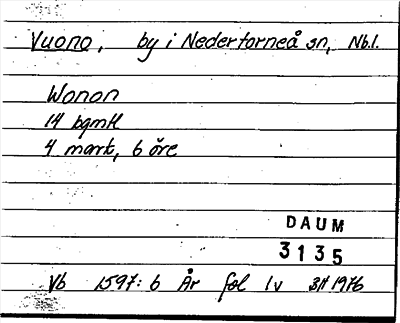 Vuono, by i Nedertorneå sn, Nb.l.
Wonon
14 bgmtl
4 mark, 6 öre
DAUM
3135
Vb 1597:6 År fol 1v 1976